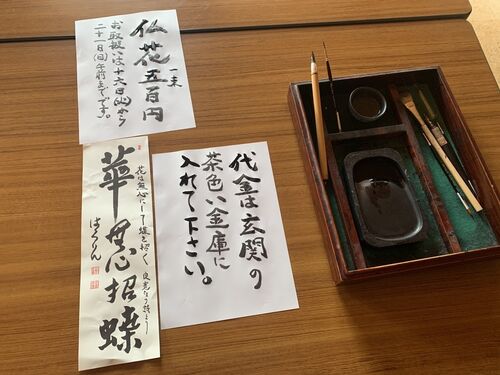 仏花五百円
一束
お取扱いは十六日(火)から
二十一日(日)午前までです。
花は無心にして蝶を招く
華無心招蝶
代金は玄関の
茶色い金庫に
入れて下さい。